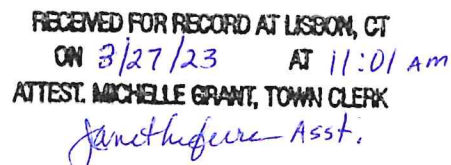 RECEIVED FOR RECORD AT LISBON, CT
ON 3/27/23 AT 11:01 AM
ATTEST. MICHELLE GRANT, TOWN CLERK
Asst.